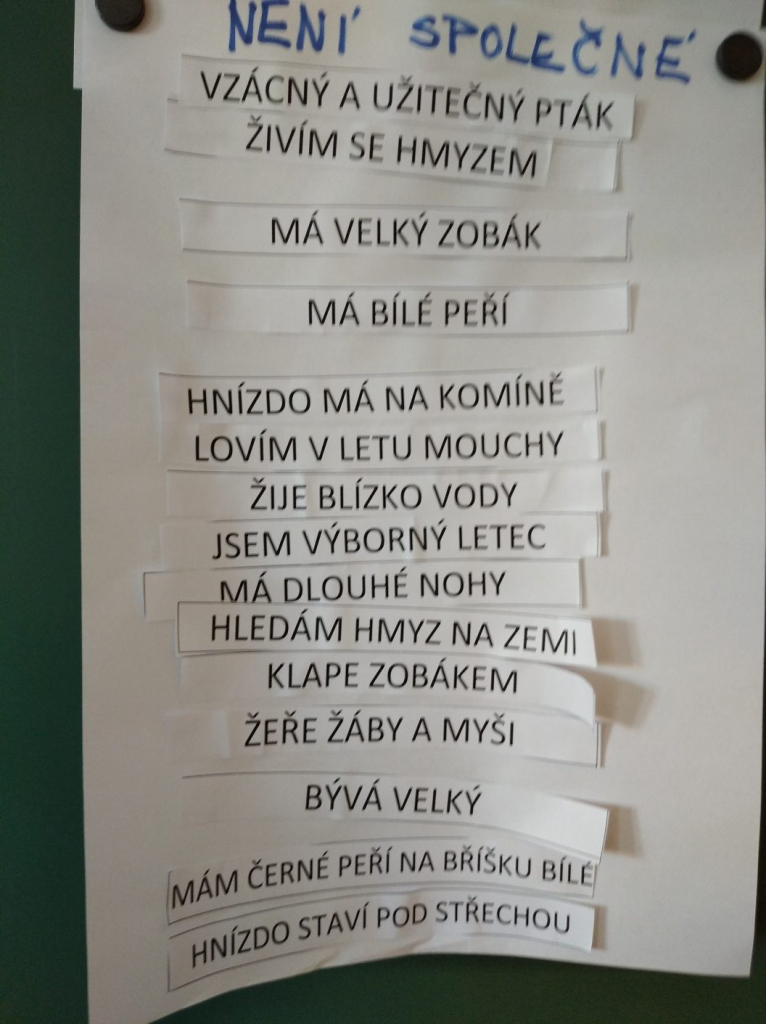 NENÍ SPOLEČNÉ
VZÁCNÝ A UŽITEČNÝ PTÁK
ŽIVÍM SE HMYZEM
MÁ VELKÝ ZOBÁK
MÁ BÍLÉ PEŘÍ
HNÍZDO MÁ NA KOMÍNĚ
LOVÍM V LETU MOUCHY
ŽIJE BLÍZKO VODY
JSEM VÝBORNÝ LETEC
MÁ DLOUHÉ NOHY
HLEDÁM HMYZ NA ZEMI
KLAPE ZOBÁKEM
ŽEŘE ŽÁBY A MYŠI
BÝVÁ VELKÝ
MÁM ČERNÉ PEŘÍ NA BŘÍŠKU BÍLÉ
HNÍZDO STAVÍ POD STŘECHOU